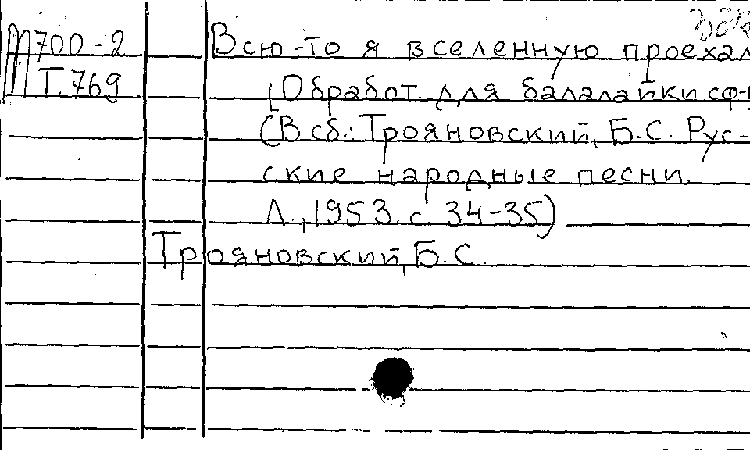 М700-2 Всю-то я вселенную проехал
Т.769 [Обработ. для балалайки с ф-
(В сб.: Трояновский, Б.С. Рус-
ские народные песни.
Л., 1953. с. 34-35)
Трояновский, Б.С.